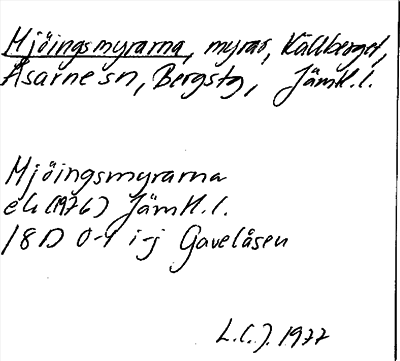 Mjöingsmyrarna, myrar, Kallberget,
Åsarne sn, Bergs tg, Jämtl. l.
Mjöingsmyrarna
ek (1976) Jämtl. l.
18D 0-1 i-j Gavelåsen
L.C.J. 1977